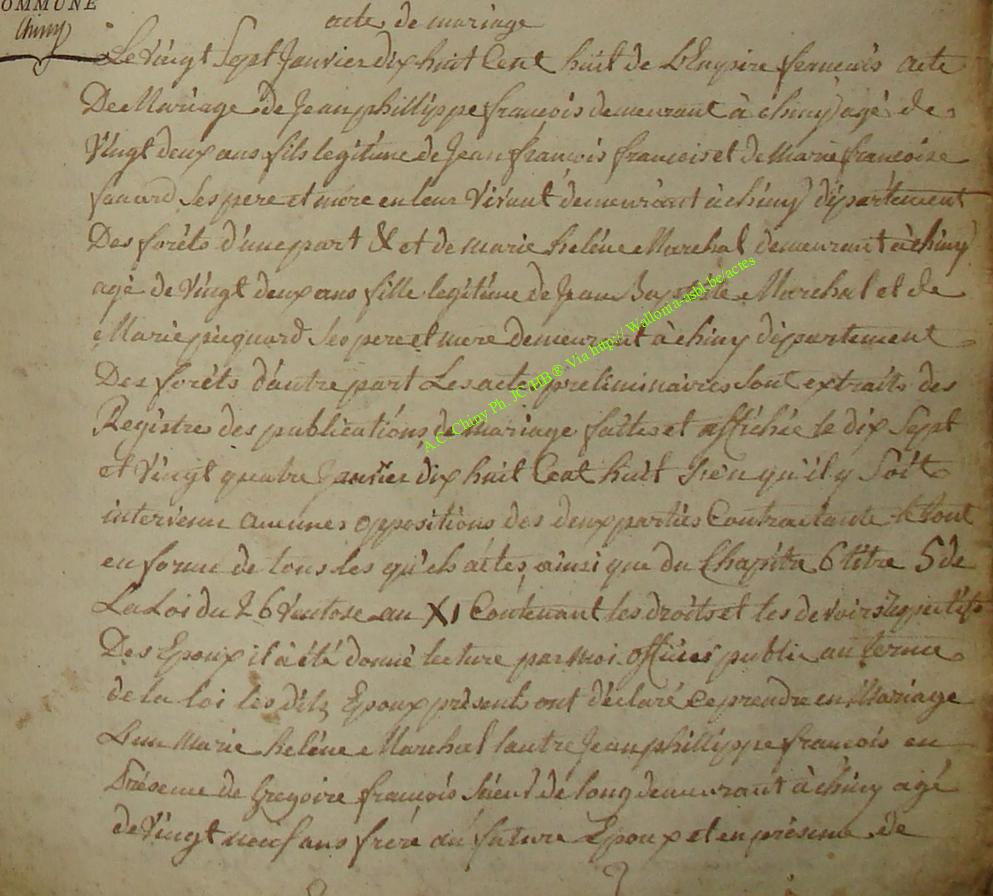 COMMUNE
Chiny
acte de mariage
Le Vingt Sept Janvier dix huit Cent huit de L'Enpire fernceis acte
De Mariage de Jean phillippe françois demeurant à chiny agé de
Vingt deux ans fils legitime de Jean françois françois et de Marie françoise
fanard Ses pere et mere en leur Vivant demeurant à chiny département
Des forêts d'une part & et de marie heléne Marchal demeurant à chiny
agé de Vingt deux ans fille legitime de Jean Baptiste Marchal et de
Marie piequard Ses pere et mere demeurant à chiny département
Des forêts d'autre part Les actes préliminaires Sont extraits des
Registres des publications de mariage faittes et affichée le dix Sept
et Vingt quatre Janvier dix huit Cent huit qu'il y Soit
intervenu aucunes oppositions des deux parties Contractante le tout
en forme de tous les quels actes, ainsi que du Chapitre 6 titre 5 de
La Loi du 26 Ventose an XI Contenant les droits et les devoirs respectifs
Des Epoux il à été donné lecture par Moi officier public au terme
de la loi les dits Epoux présents ont déclaré ce prendre en Mariage
L'un Marie heléne Marchal lautre Jean phillippe françois en
Présence de Gregoire françois de long demeurant à chiny agé
de Vingt neuf ans frere du future Epoux et en présence de
A.C. Chiny Ph. JC HB ® Via http:// Walloma-asbl.be/actes